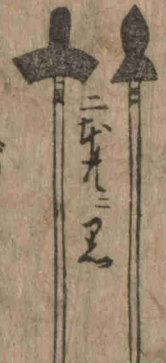 二本共ニ黒